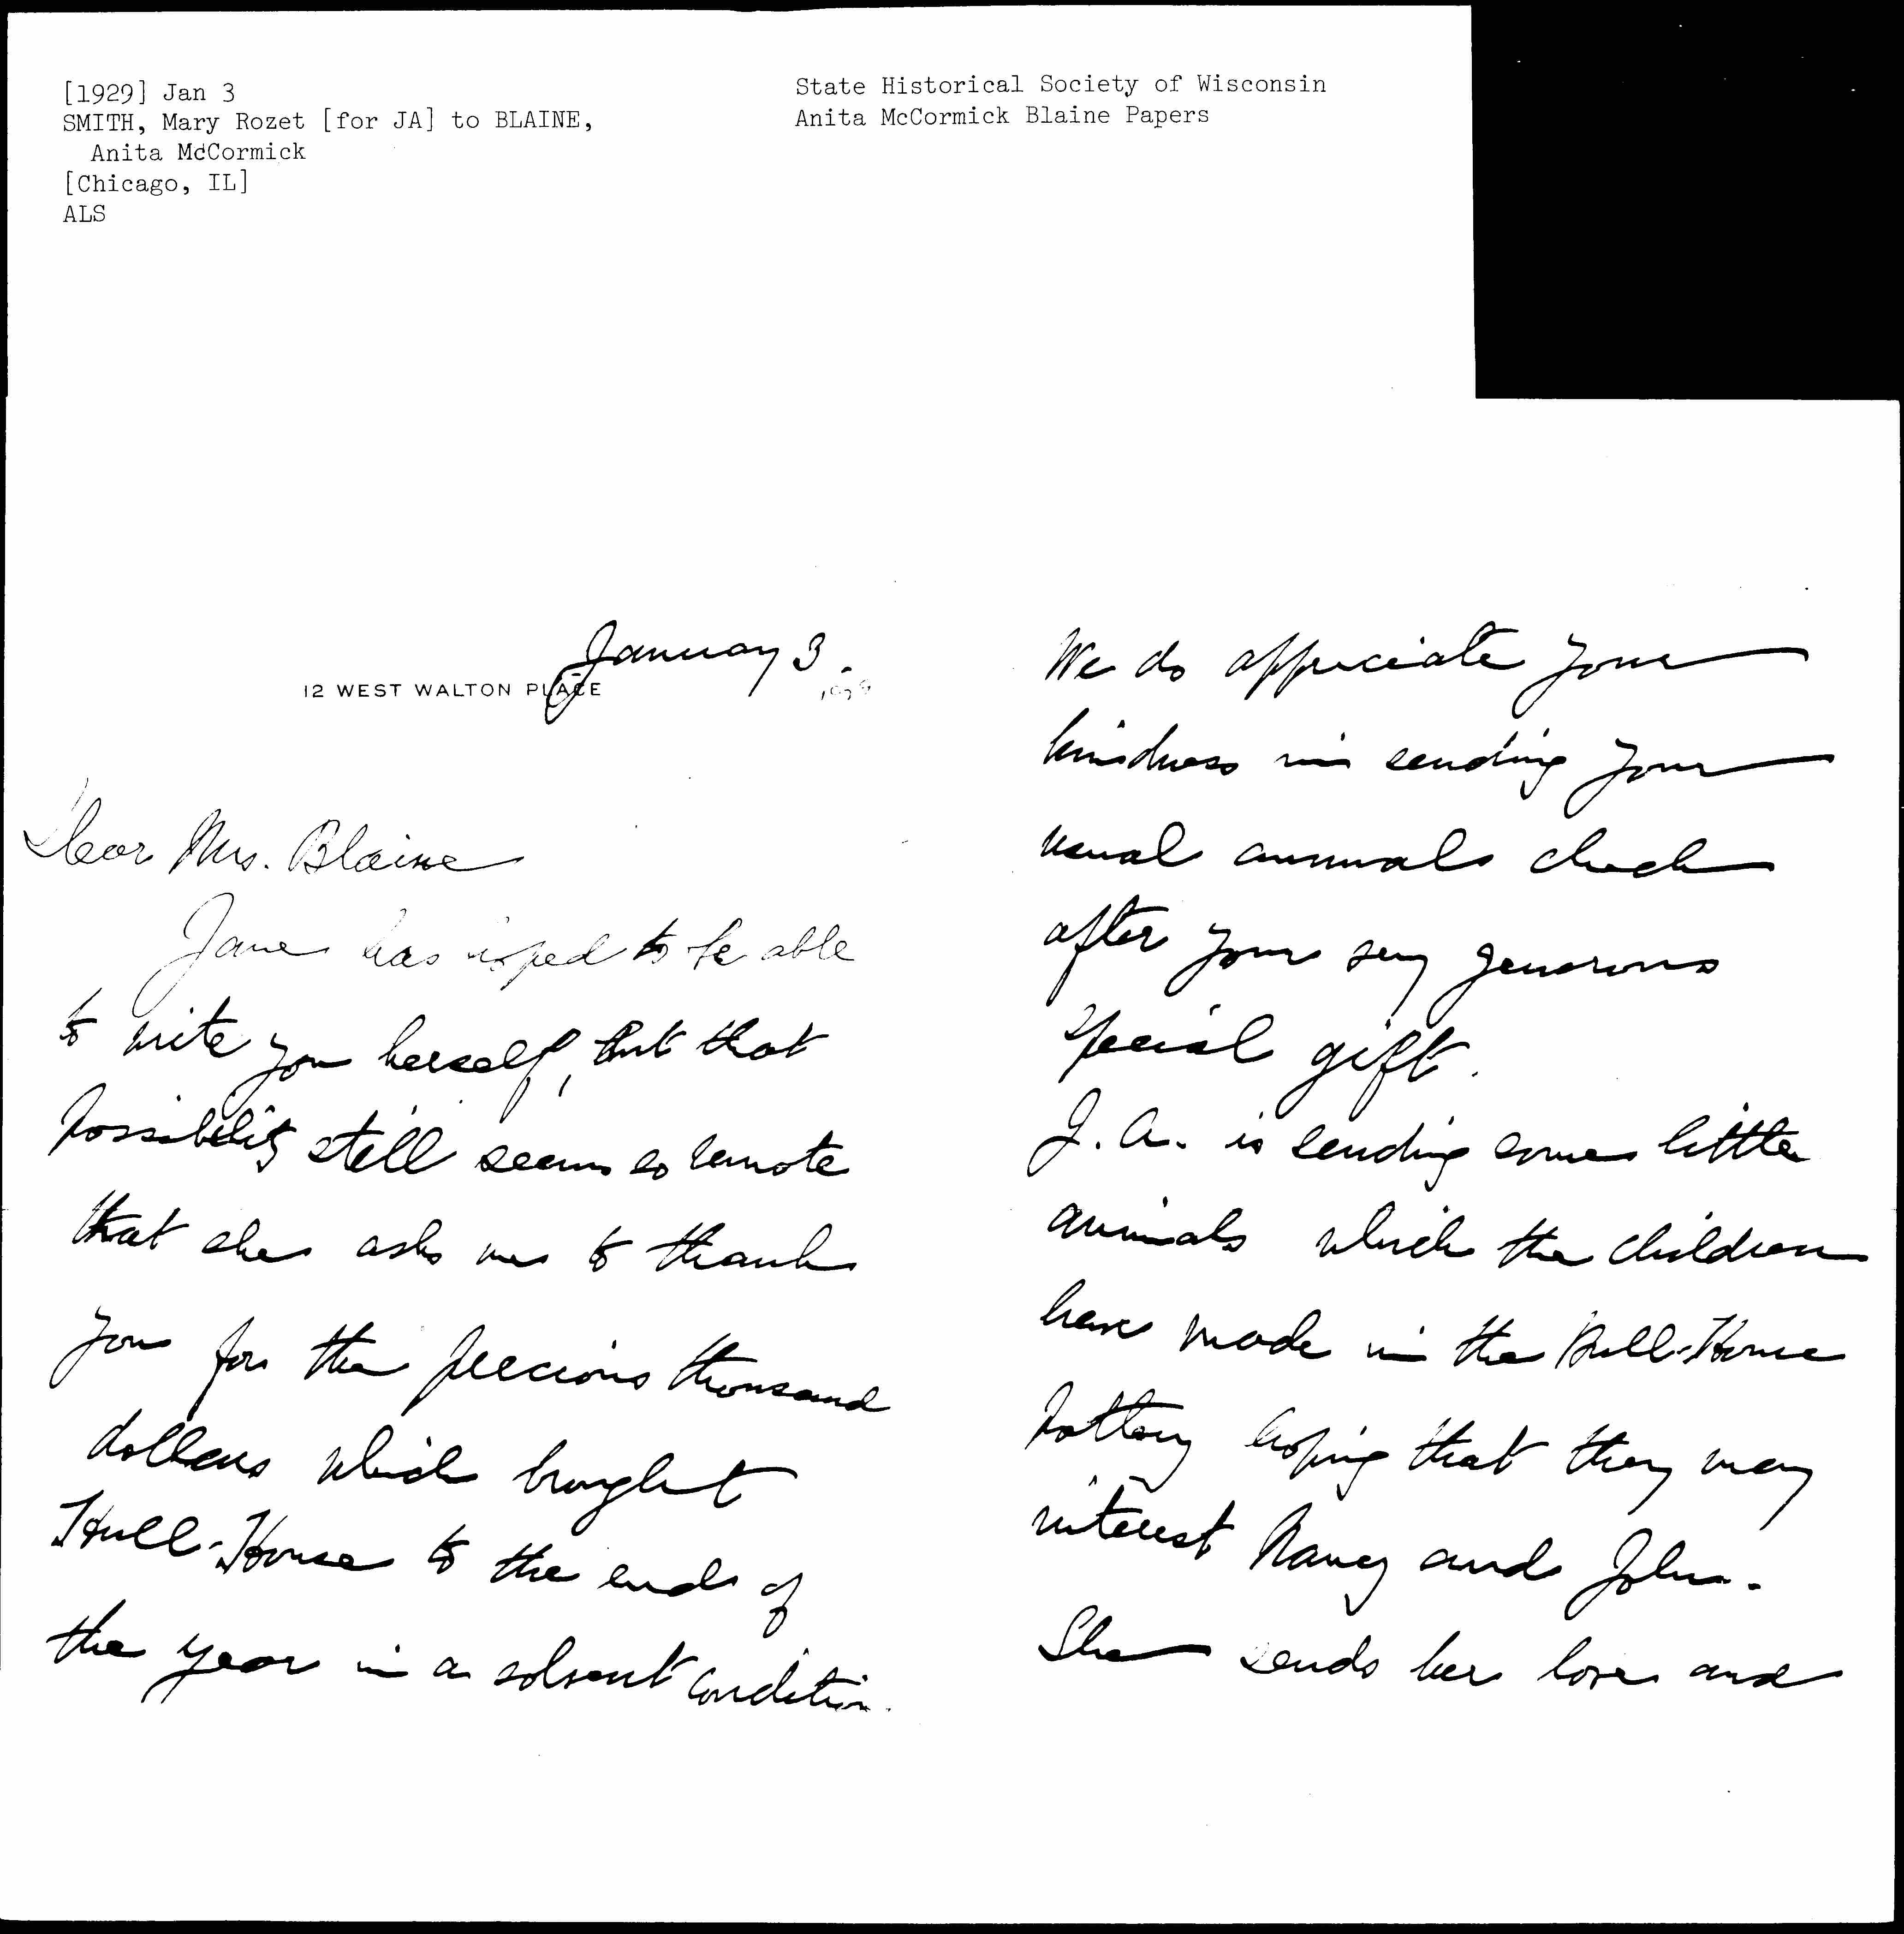 [1929] Jan 3
SMITH, Mary Rozet [for JA] to BLAINE,
Anita McCormick
[Chicago, IL]
ALS
State Historical Society of Wisconsin
Anita McCormick Blaine Papers
January 3.
12 WEST WALTON PLACE
Dear Mrs. Blaine
Jane has hoped to be able
to write you herself, but that
possibility still seems so remote
that she asks me to thank
you for the precious thousand
dollars which brought
Hull-House to the end of
the year in a solvent condition.
We do appreciate your
kindness in sending your
usual annual check
after your very generous
special gift.
J. A. is sending some little
animals which the children
have made in the Hull-House
Pottery hoping that they may
interest Nancy and John.
She sends her love and